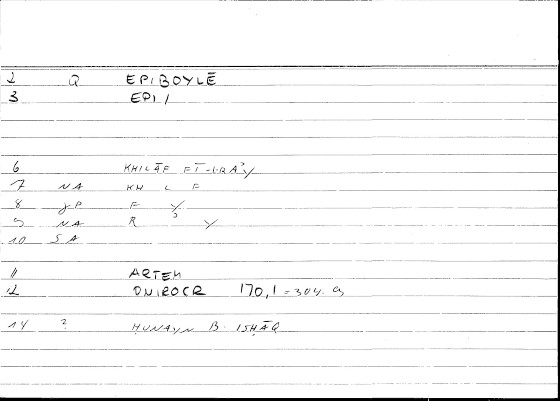 2 Q EPIBOYLĒ
3 EPI /
6 KHILĀF FĪ-L-RAʾY
7 NA KH L F
8 gP F Y
9 NA R ʾ Y
10 SA
11 ARTEM
12 ONIROCR 170,1 = 304.
14 ? ḤUNAYN B. ISḤĀQ